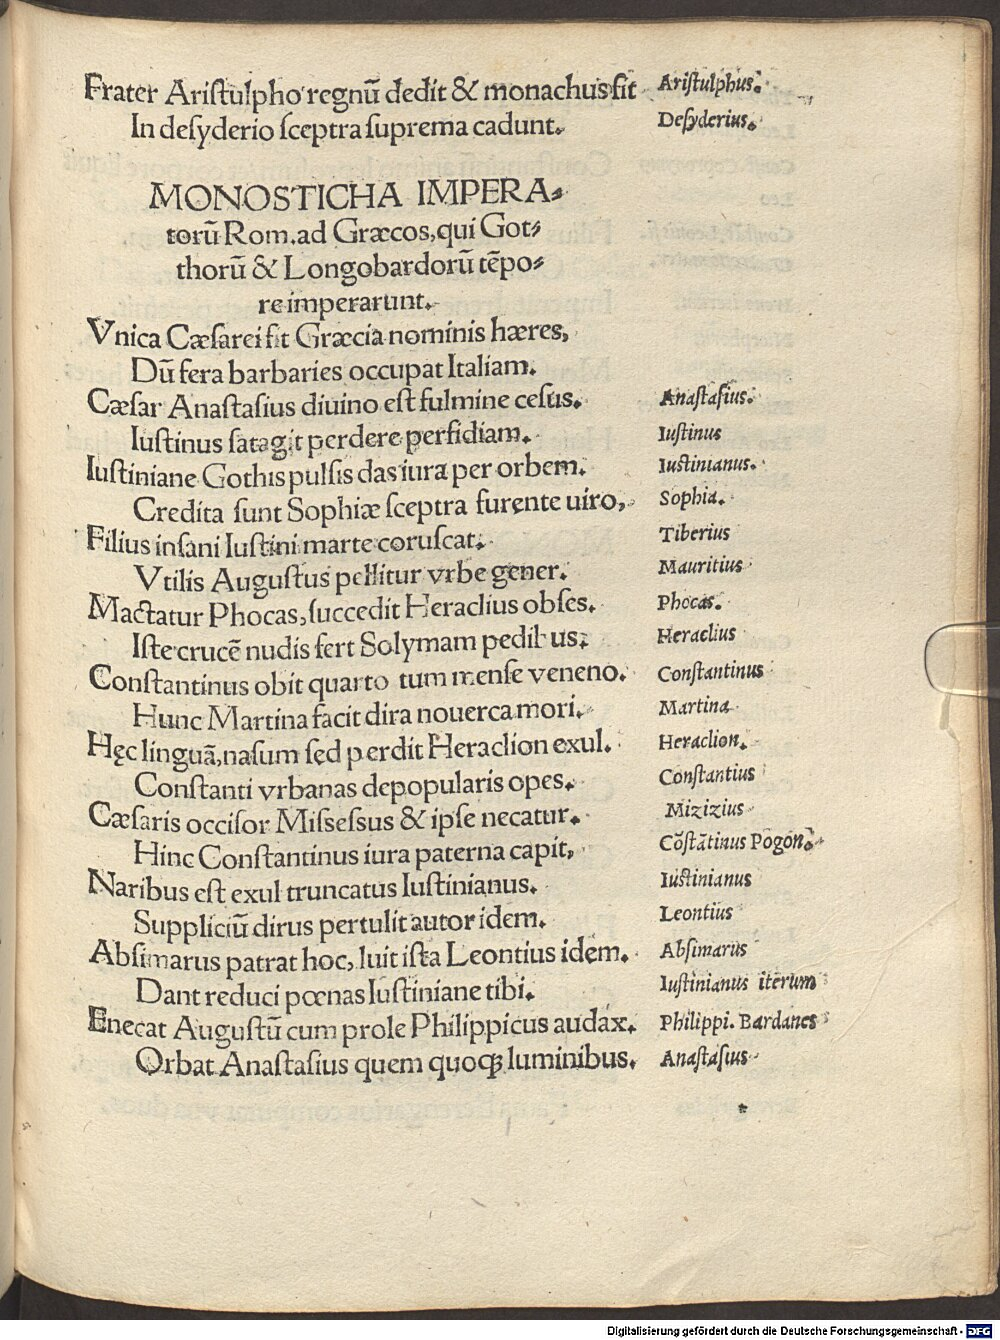 Frater Ariſtulpho regnū dedit & monachus fit Ariſtulphus.
In deſyderio ſceptra ſuprema cadunt. Deſyderius.
MONOSTICHA IMPERA⸗
torū Rom. ad Græcos, qui Got⸗
thorū & Longobardorū tēpo⸗
re imperarunt.
Vnica Cæſarei fit Græcia nominis hæres,
Dū fera barbaries occupat Italiam.
Cæſar Anaſtaſius diuino eſt fulmine ceſus. Anaſtaſius.
Iuſtinus ſatagit perdere perfidiam. Iuſtinus
Iuſtiniane Gothis pulſis das iura per orbem. Iuſtinianus.
Credita ſunt Sophiæ ſceptra furente uiro, Sophia.
Filius inſani Iuſtini marte coruſcat. Tiberius
Vtilis Auguſtus pellitur vrbe gener. Mauritius
Mactatur Phocas, ſuccedit Heraclius obſes. Phocas.
Iſte crucē nudis fert Solymam pedibus. Heraclius
Conſtantinus obit quarto tum menſe veneno. Conſtantinus
Hunc Martina facit dira nouerca mori. Martina
Hęc linguā, naſum ſed perdit Heraclion exul. Heraclion.
Conſtanti vrbanas depopularis opes. Conſtantius
Cæſaris occiſor Miſseſsus & ipſe necatur. Mizizius
Hinc Conſtantinus iura paterna capit, Cōſtātinus Pogon.
Naribus eſt exul truncatus Iuſtinianus. Iuſtinianus
Suppliciū dirus pertulit autor idem. Leontius
Abſimarus patrat hoc, luit iſta Leontius idem. Abſimarus
Dant reduci pœnas Iuſtiniane tibi. Iuſtinianus iterum
Enecat Auguſtū cum prole Philippicus audax. Philippi. Bardanes
Orbat Anaſtaſius quem quoqꝫ luminibus. Anaſtaſius
Digitalisierung gefördert durch die Deutsche Forschungsgemeinschaft - DFG